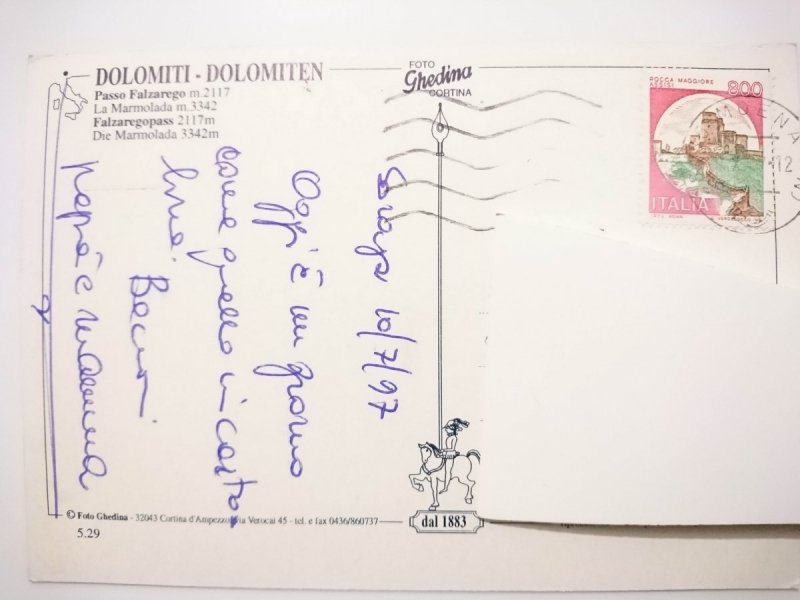 DOLOMITI - DOLOMITEN
Passo Falzarego m.2117
La Marmolada m.3342
Falzaregopass 2117m
Die Marmolada 3342m
FOTO
Ghedina
CORTINA
ROCCA MAGGIORE
ASSISI
800
ITALIA
MOENA
12
10/7/97
Oggi è un giorno
come quello in carto
lina. Bacioni
papà e mamma
© Foto Ghedina - 32043 Cortina d'Ampezzo Via Verocai 45 - tel. e fax 0436/860737
dal 1883
5.29